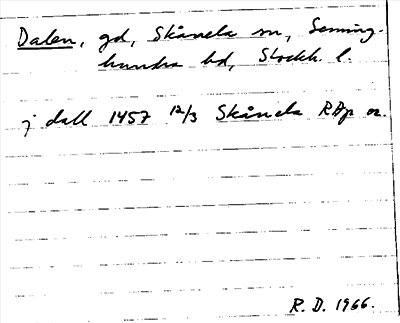 Dalen, gd, Skånela sn, Seming-
hundra hd, Stockh. l.
j dall 1457 12/3 Skånela RAp or.
R. D. 1966.